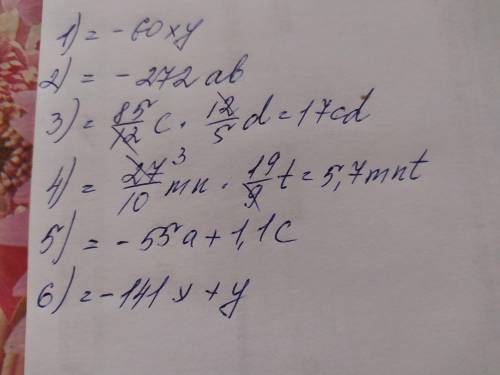 1) = -60xy
2) = -272ab
3) = 85/12 c · 12/5 d = 17cd
4) = 27 3/10 mn · 19/9 t = 5,7mnt
5) = -55a + 1,1c
6) = -141x + y